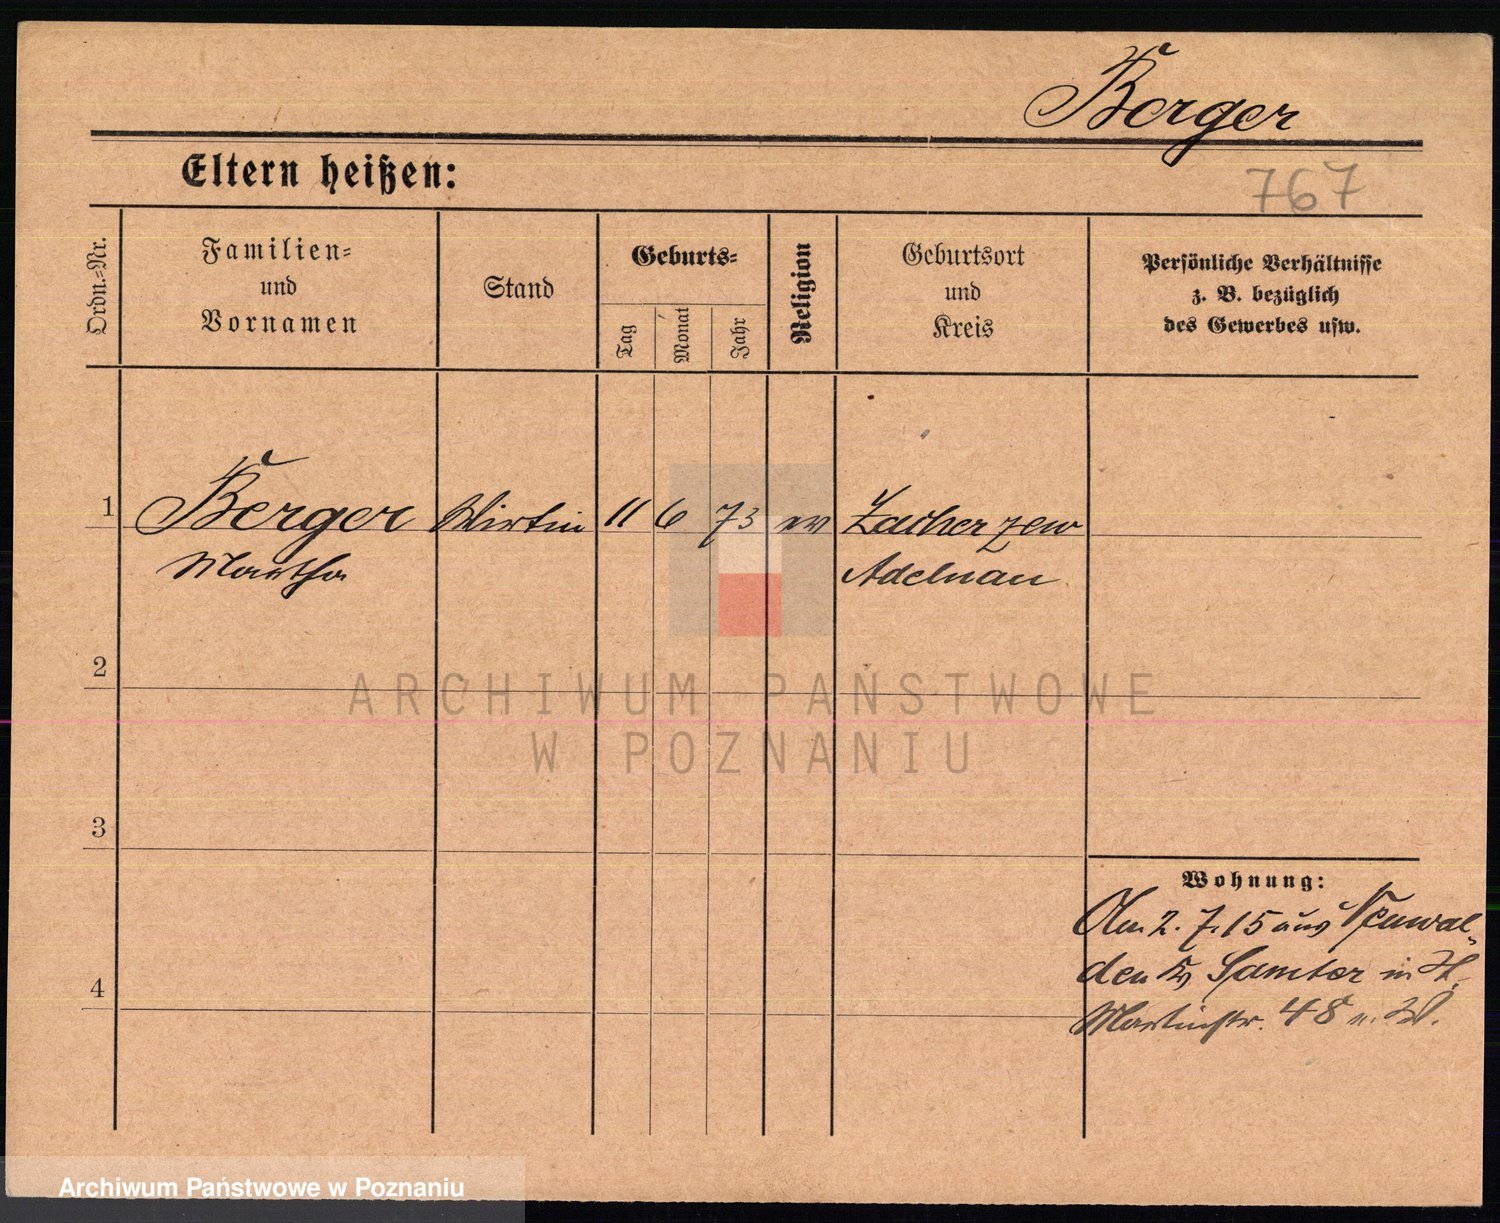 Berger
Eltern heißen:
767
Ordn.-Nr.
Familien-
und
Vornamen
Stand
Geburts-
Tag
Monat
Jahr
Religion
Geburtsort
und
Kreis
Persönliche Verhältnisse
z. B. bezüglich
des Gewerbes usw.
1 Berger Wirtin 11 6 73 ev Zacherzew
Martha Adelnau
2
ARCHIWUM PAŃSTWOWE
W POZNANIU
3
Wohnung:
2. 7. 15 aus
den Samter in
4
Martinstr. 48
Archiwum Państwowe w Poznaniu